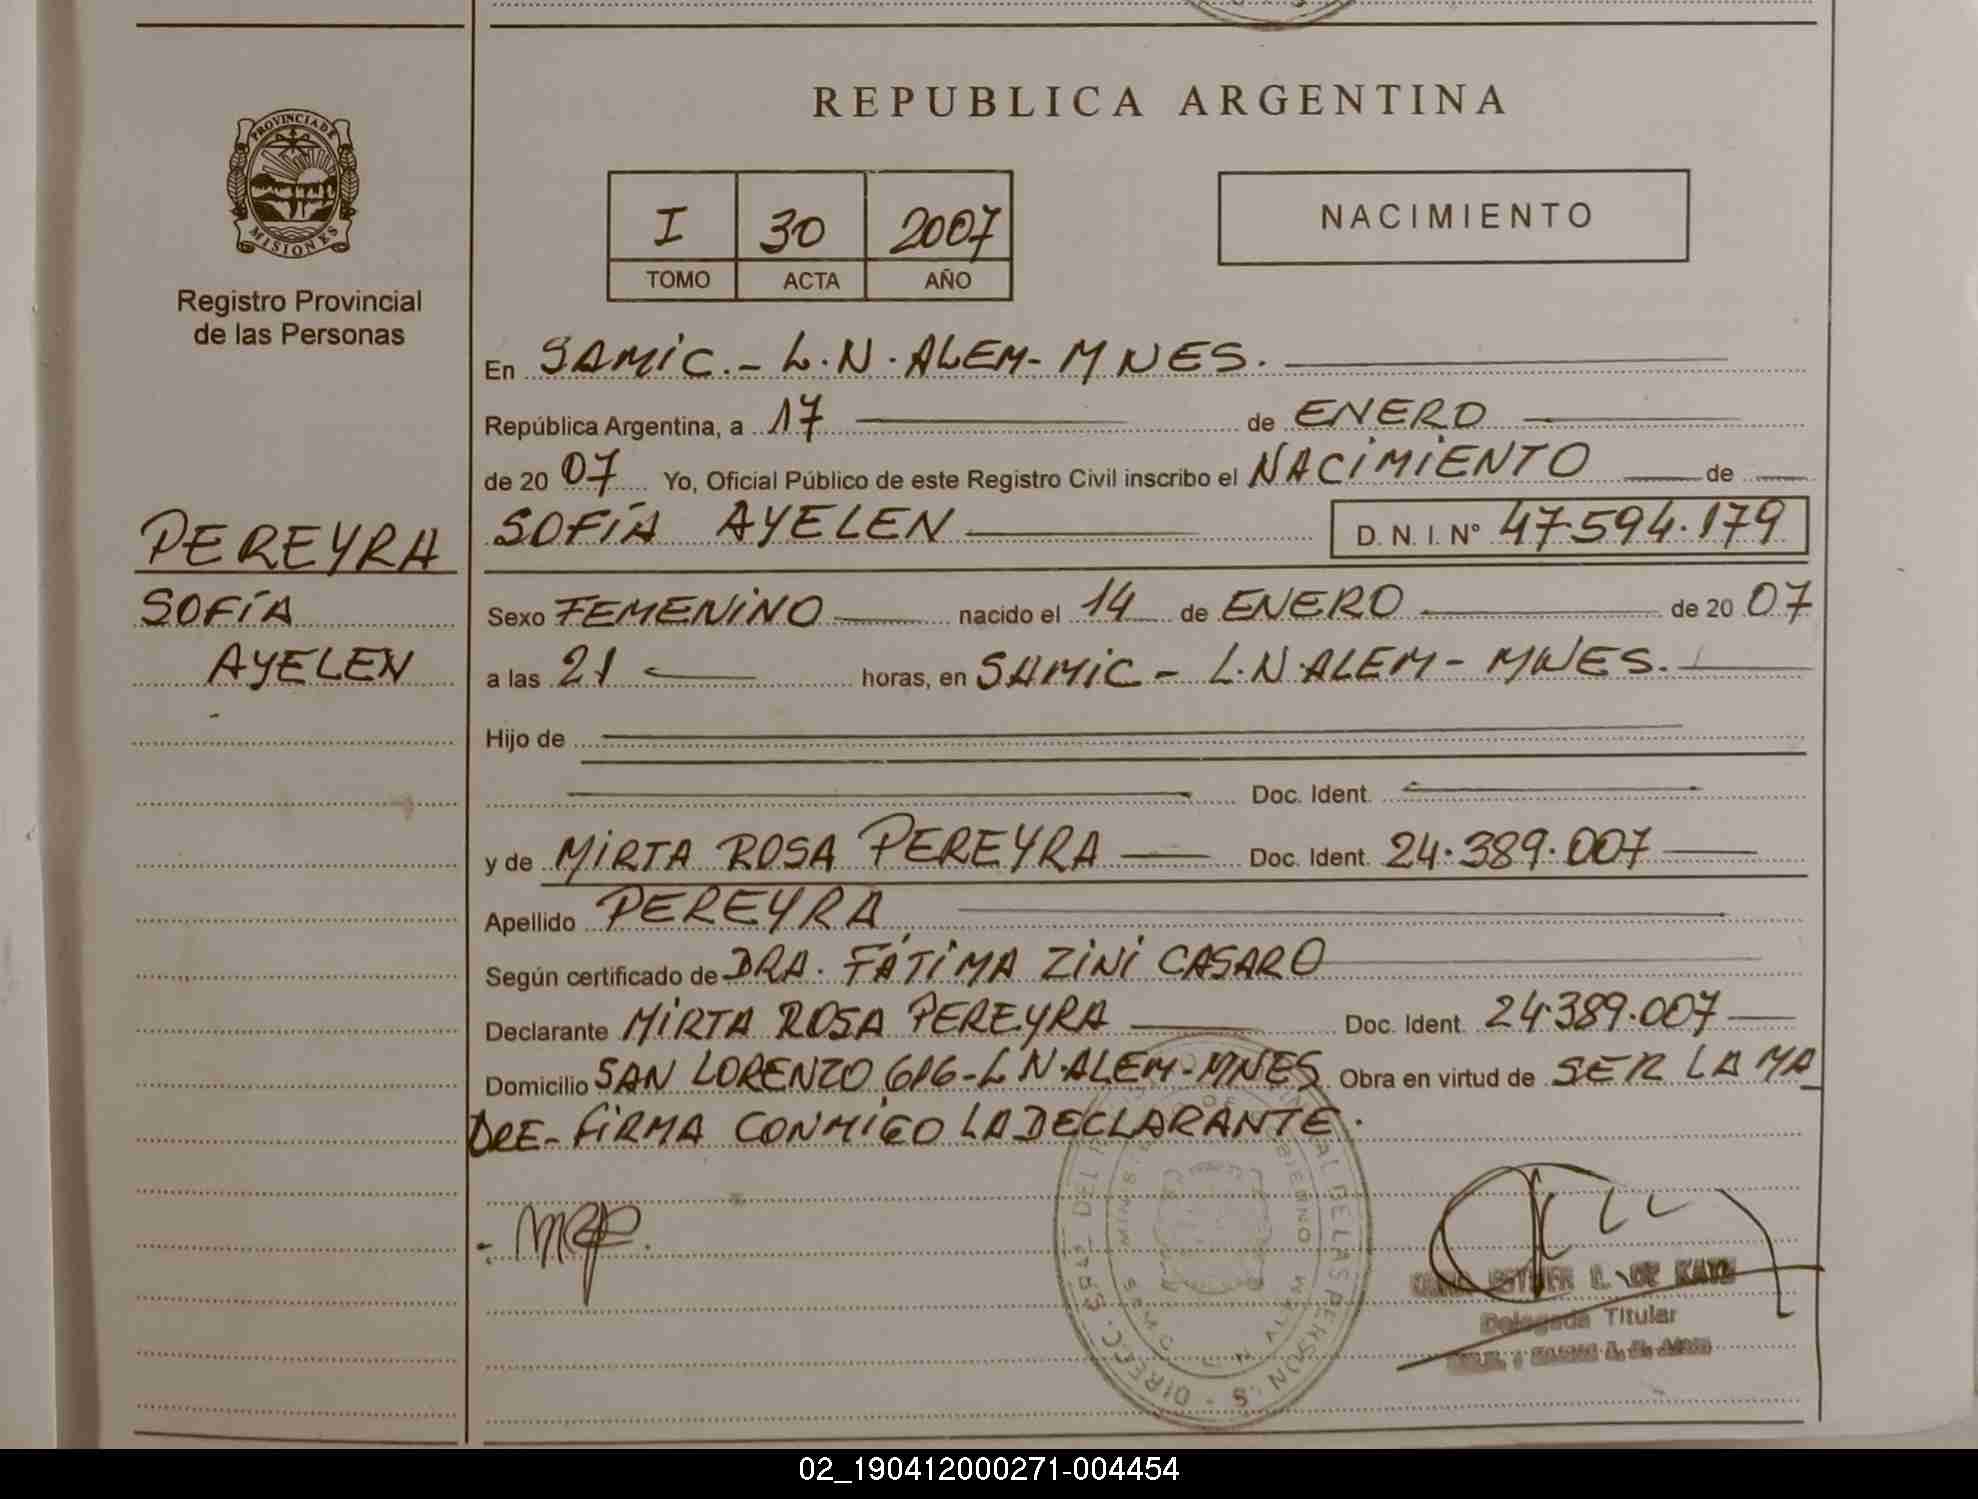 REPUBLICA ARGENTINA
PROVINCIA DE
MISIONES
Registro Provincial
de las Personas
I 30 2007
TOMO ACTA AÑO
NACIMIENTO
En SAMIC.- L.N.ALEM-MNES.
República Argentina, a 17 de ENERO
de 20 07 Yo, Oficial Público de este Registro Civil inscribo el NACIMIENTO de
PEREYRA
SOFÍA
AYELEN
SOFÍA AYELEN D. N. I. N° 47.594.179
Sexo FEMENINO nacido el 14 de ENERO de 20 07
a las 21 horas, en SAMIC - L.N.ALEM - MNES.
Hijo de
Doc. Ident.
y de MIRTA ROSA PEREYRA Doc. Ident. 24.389.007
Apellido PEREYRA
Según certificado de DRA. FÁTIMA ZINI CASARO
Declarante MIRTA ROSA PEREYRA Doc. Ident. 24.389.007
Domicilio SAN LORENZO 616-L N.ALEM-MNES Obra en virtud de SER LA MA
DRE- FIRMA CONMIGO LA DECLARANTE.
MRP.
ESTHER DE
Delegada Titular
02_190412000271-004454